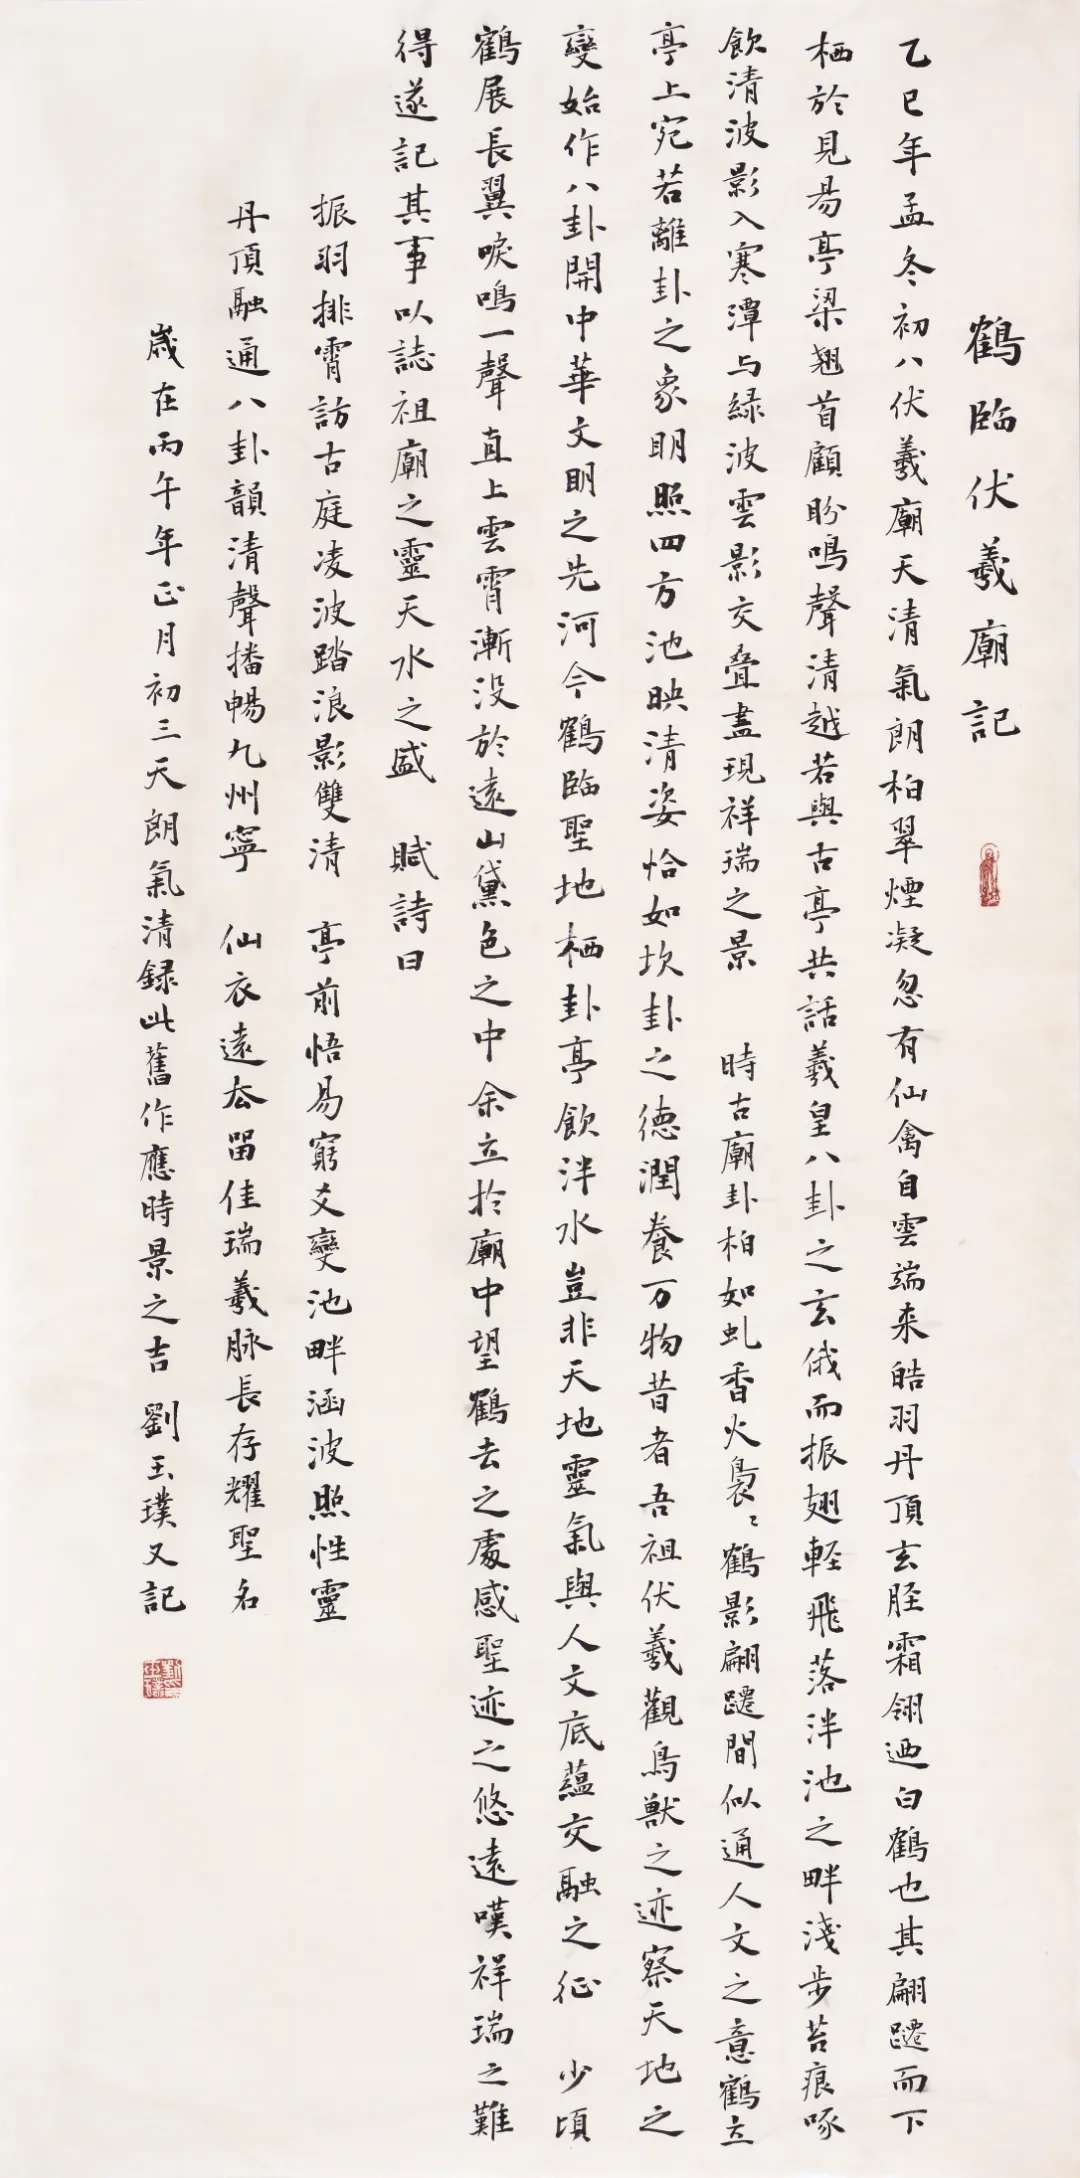 鶴臨伏羲廟記
乙巳年孟冬初八伏羲廟天清氣朗柏翠煙凝忽有仙禽自雲端来皓羽丹頂玄胫霜翎迺白鶴也其翩躚而下
栖於見易亭梁翘首顧盼鳴聲清越若與古亭共話羲皇八卦之玄俄而振翅輕飛落泮池之畔淺步苔痕啄
飲清波影入寒潭与緑波雲影交叠盡現祥瑞之景 時古廟卦柏如虬香火裊〻鶴影翩躚間似通人文之意鶴立
亭上宛若離卦之象明照四方池映清姿恰如坎卦之德潤養万物昔者吾祖伏羲觀鳥獸之迹察天地之
變始作八卦開中華文明之先河今鶴臨聖地栖卦亭飲泮水豈非天地靈氣與人文底蘊交融之征 少頃
鶴展長翼唳鳴一聲直上雲霄漸没於遠山黛色之中余立於廟中望鶴去之處感聖迹之悠遠嘆祥瑞之難
得遂記其事以誌祖廟之靈天水之盛 賦詩曰
振羽排霄訪古庭凌波踏浪影雙清 亭前悟易窮爻變池畔涵波照性靈
丹頂融通八卦韻清聲播暢九州寧 仙衣遠去留佳瑞羲脉長存耀聖名
歲在丙午年正月初三天朗氣清録此舊作應時景之吉 劉玉璞又記